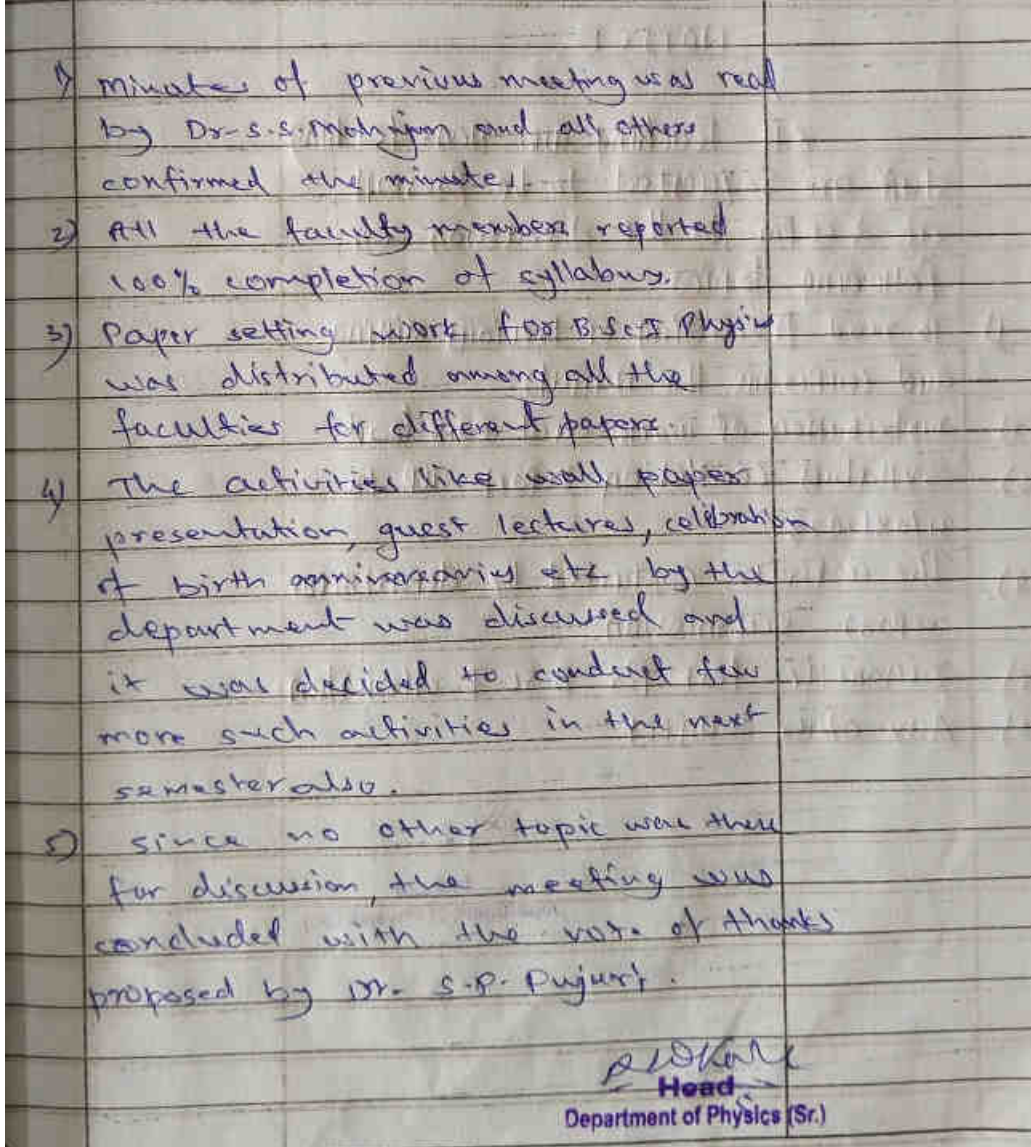 1) Minutes of previous meeting was read
by Dr. S. S. Mahajan and all others
confirmed the minutes.
2) All the faculty members reported
100% completion of syllabus.
3) Paper setting work for B.Sc-I Physics
was distributed among all the
faculties for different papers.
4) The activities like wall paper
presentation, guest lectures, celebration
of birth anniversaries etc by the
department was discussed and
it was decided to conduct few
more such activities in the next
semester also.
5) since no other topic was there
for discussion, the meeting was
concluded with the vote of thanks
proposed by Dr. S. P. Pujari.
Head
Department of Physics (Sr.)